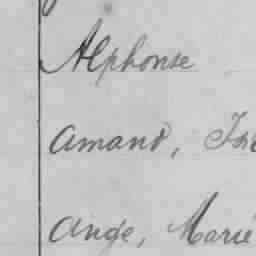 Alphonse
Amand,
Ange, Marie